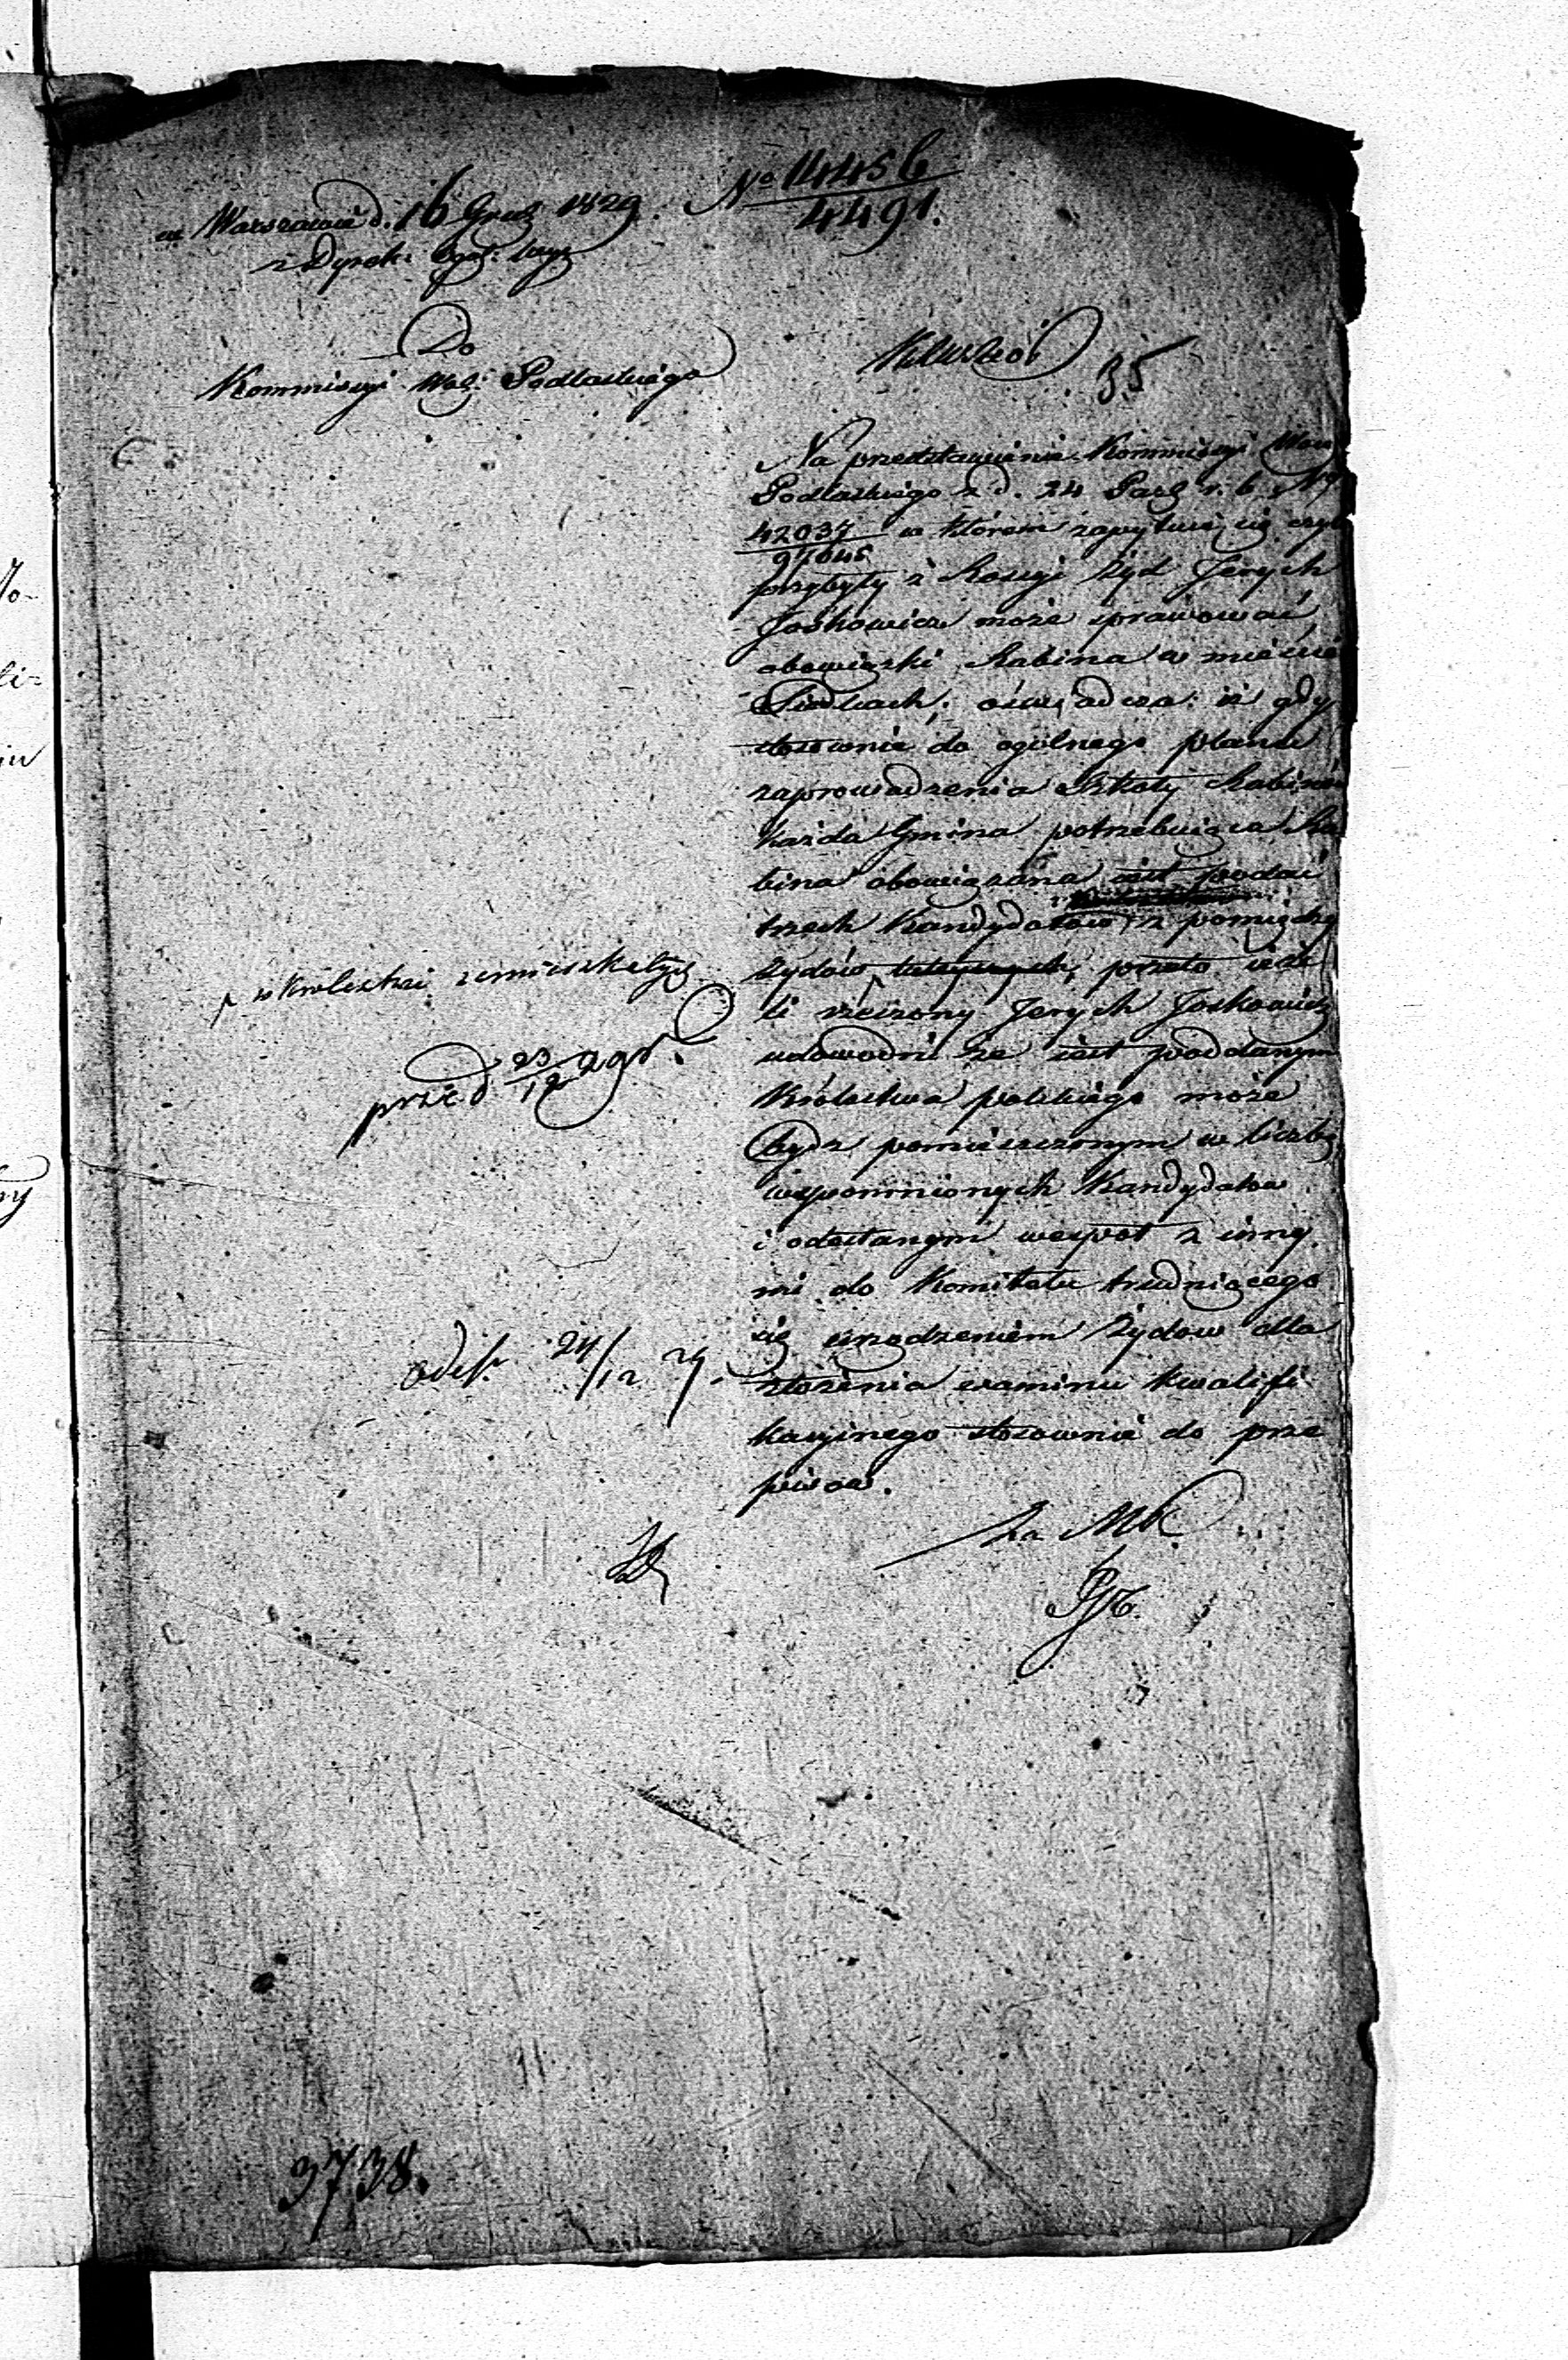 w Warszawie d. 16 Grud 1829.
No 14456
4491.
z Dyrek:
Do
Kommissyi Woj: Podlaskiego
35
Na przedstawienie Kommissyi Woiew
Podlaskiego z d. 24 Paźz r. b. No
42037 w którem zapytuie się czyli
97045
przybyły z Rossyi Żyd Jerych
Joskowicz może sprawować
obowiązki Rabina w mieście
Siedlcach; oświadcza: iż gdy
stosownie do ogólnego planu
zaprowadzenia Szkoły Rabinów
każda Gmina potrzebuiąca Ra
bina obowiązana iest podać
trzech Kandydatów z pomiędzy
Żydów tuteyszych, przeto ieże
w Królestwie zamieszkałych
li rzeczony Jerych Joskowicz
udowodni że iest poddanym
przed 23/12 29 r.
Królestwa polskiego może
bydz pomieszczonym w liczbę
wspomnionych Kandydatów
i odesłanym wespół z inny
mi do Komitetu trudniącego
się urządzeniem Żydów dla
odesł. 24/12 29.
złożenia examinu kwalifi
kacyinego stosownie do prze
pisów.
Za MK
3738.